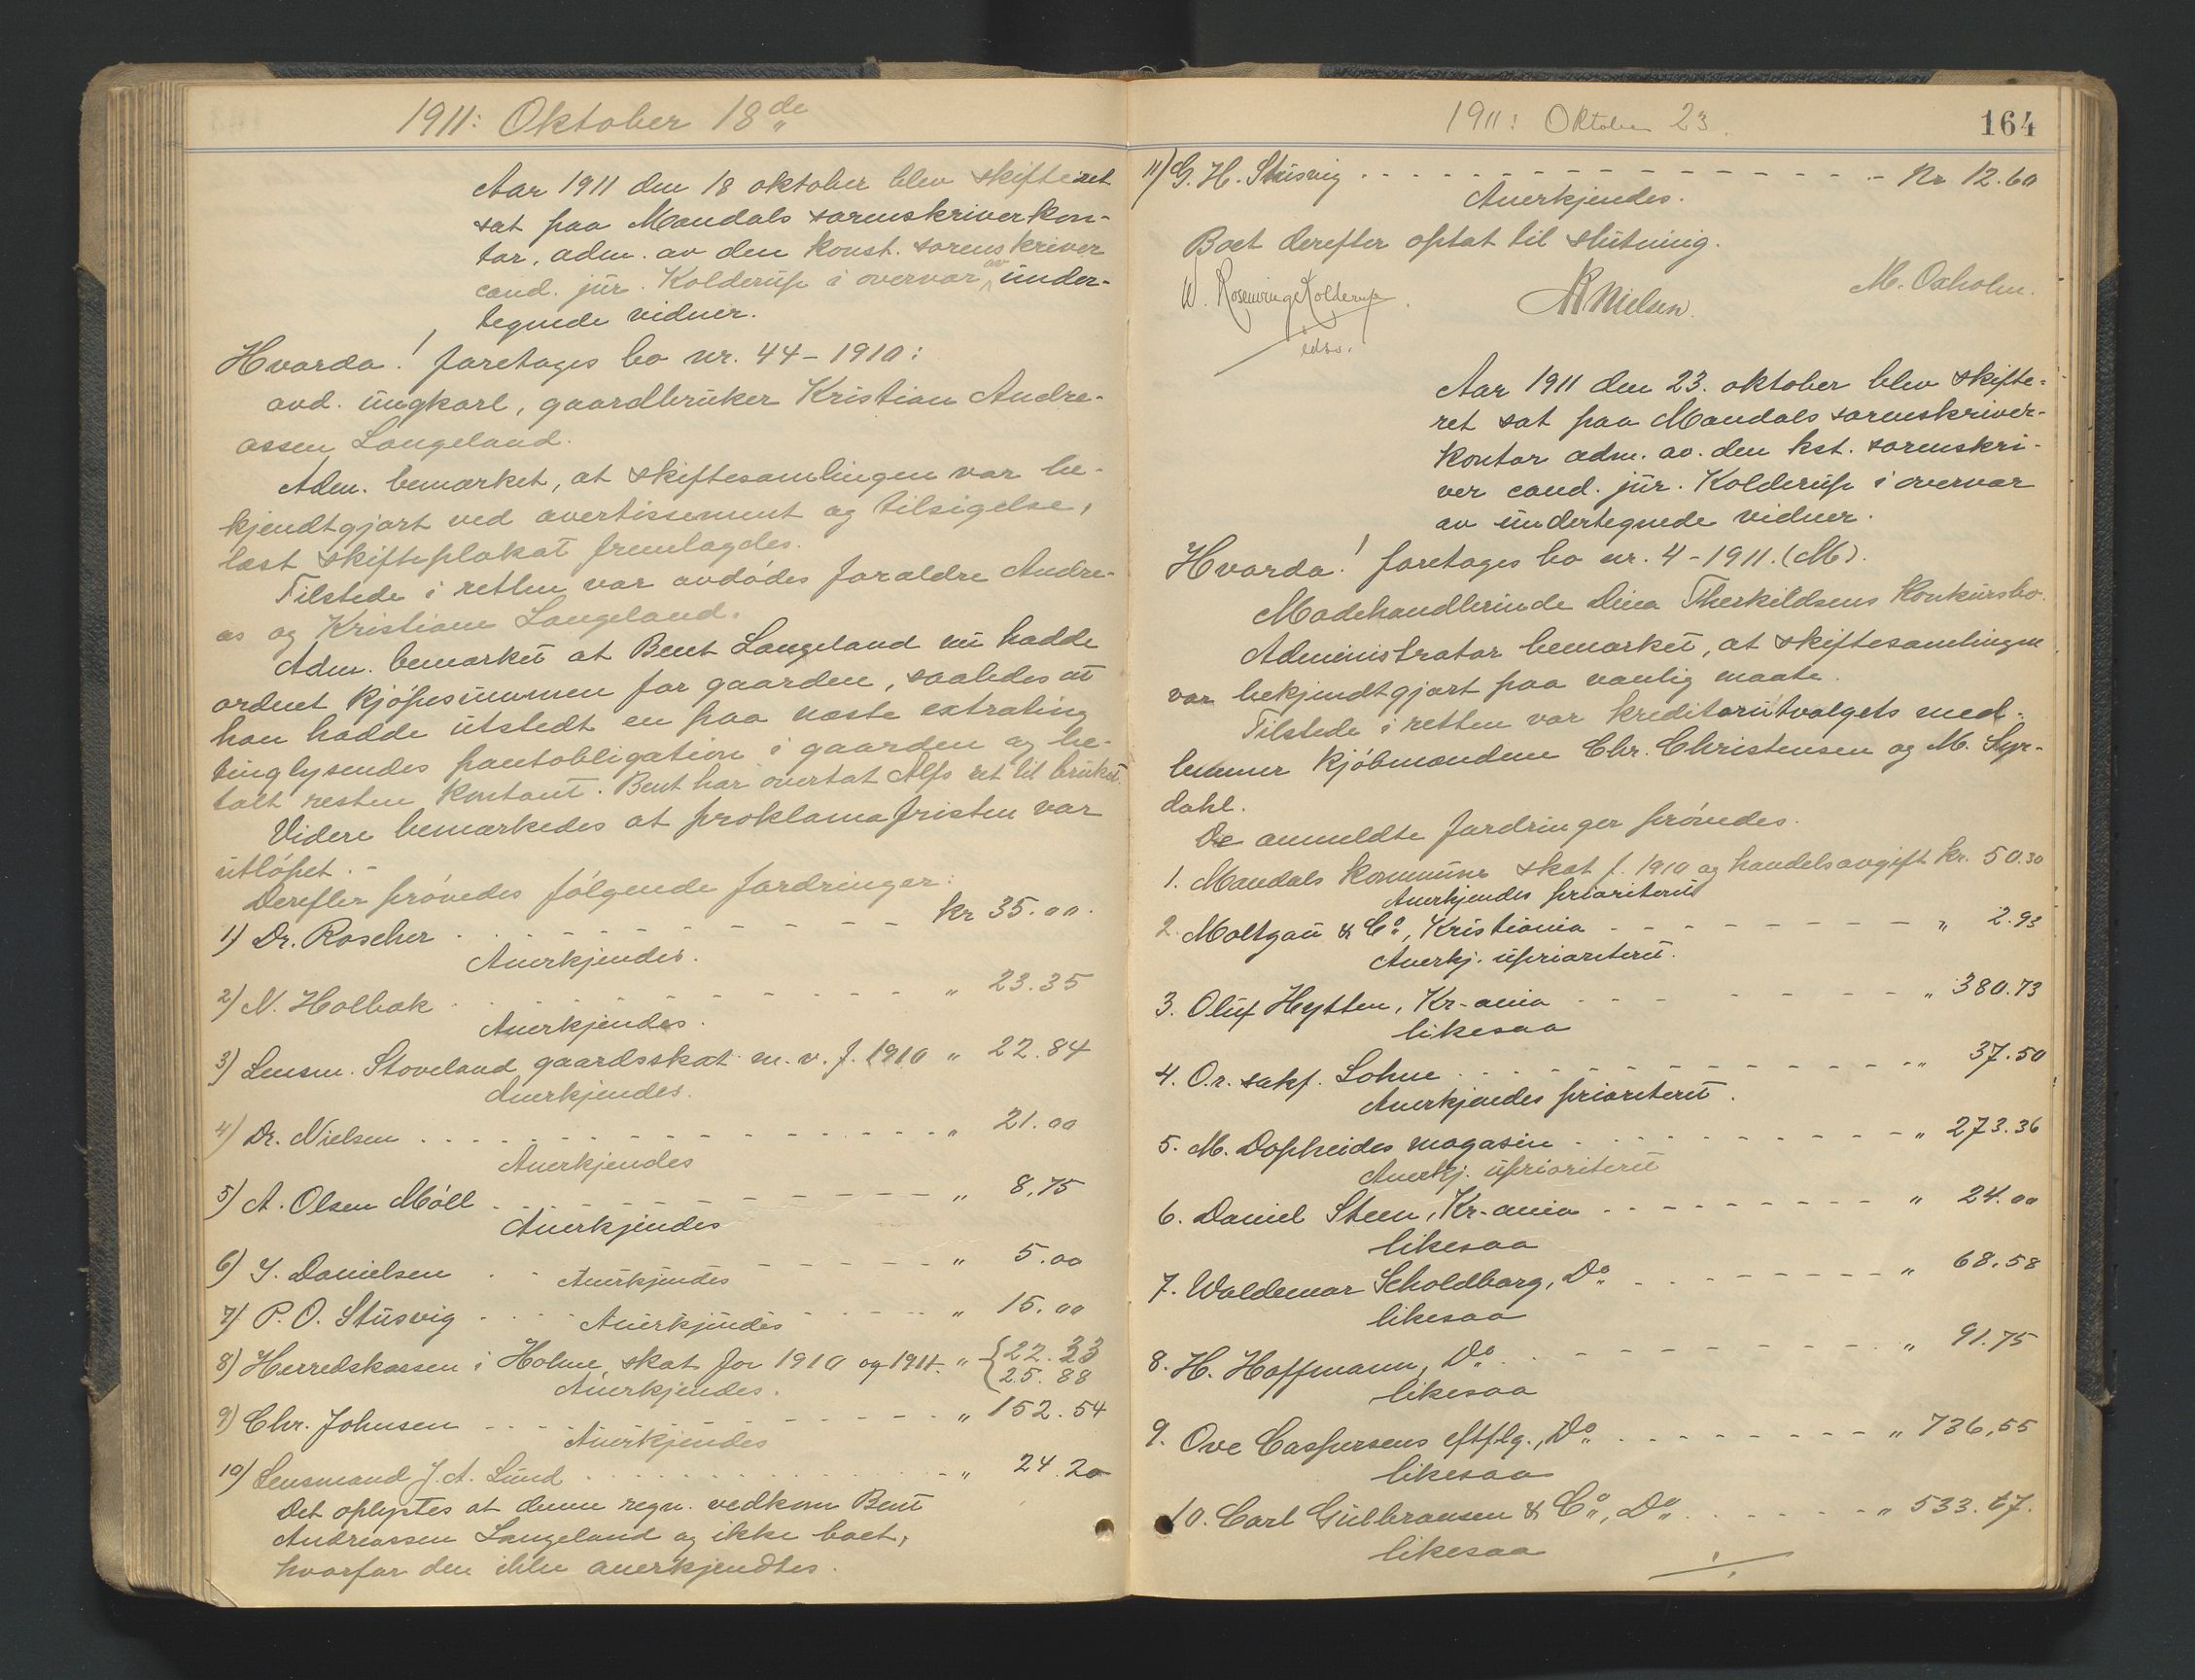 1911: Oktober 18de
Aar 1911 den 18 oktober blev skifteret
sat paa Mandals sorenskriverkon-
tor, adm. av den konst. sorenskriver
cand. jur. Kolderup i overvær av under-
tegnede vidner.
Hvorda! foretages bo nr. 44-1910:
avd. ungkarl, gaardbruker Kristian Andre-
assen Langeland.
Adm. bemærket, at skiftesamlingen var be-
kjendtgjort ved avertissement og tilsigelse,
læst skifteplakat fremlagdes.
Tilstede i retten var avdødes forældre Andre-
as og Kristiane Langeland.
Adm. bemærket at Bent Langeland nu hadde
ordnet kjøpesummen for gaarden, saaledes at
han hadde utstedt en paa næste extrating
tinglysendes pantobligation i gaarden og be-
talt resten kontant. Bent har overtat Alfs ret til bruket.
Videre bemærkedes at proklamafristen var
utløpet. -
Derefter prøvedes følgende fordringer:
1) Dr. Roscher - - - kr 35.00.
Anerkjendes.
2) N. Holbæk - - - " 23.35
Anerkjendes.
3) Lensm. Stoveland gaardsskat m.v. f. 1910 " 22.84
Anerkjendes.
4) Dr. Nielsen - - - " 21.00
Anerkjendes
5) A. Olsen Móll - - - " 8,75
Anerkjendes
6) Y. Danielsen - - - " 5.00
Anerkjendes
7) P. O. Stusvig - - - " 15.00
Anerkjendes
8) Herredskassen i Holme, skat for 1910 og 1911. " {22.33
{25.88
Anerkjendes.
9) Chr. Johnsen - - - " 152.54
Anerkjendes
10) Lensmand J. A. Lund - - - " 24.20
Det oplystes at denne regn. vedkom Bent
Andreassen Langeland og ikke boet,
hvorfor den ikke anerkjendtes.
1911: Oktober 23.
164
11) G. H. Stusvig - - - Kr 12.60
Anerkjendes.
Boet derefter optat til slutning.
W. Rosenvinge Kolderup.
edsv.
Nielsen.
M. Oxholm.
Aar 1911 den 23. oktober blev skifte-
ret sat paa Mandals sorenskriver-
kontor adm. av. den kst. sorenskri-
ver cand. jur. Kolderup i overvær
av undertegnede vidner.
Hvorda! foretages bo nr. 4-1911. (M).
Modehandlerinde Dina Therkildsens konkursbo.
Administrator bemærket, at skiftesamlingen
var bekjendtgjort paa vanlig maate.
Tilstede i retten var kreditorutvalgets med-
lemmer kjøbmændene Chr. Christensen og M. Syr-
dahl.
De anmeldte fordringer prøvedes.
1. Mandals kommune skat f. 1910 og handelsavgift kr. 50.30
Anerkjendes prioritert
2. Moltzau & Co., Kristiania - - - " 2.93
Anerkj. uprioritert.
3. Oluf Hytten, Kr-ania - - - " 380.73
likesaa
4. O.r. sakf. Lohne - - - " 37.50
Anerkjendes prioritert.
5. M. Dopheides magasin - - - " 273.36
Anerkj. uprioritert
6. Daniel Steen, Kr-ania - - - " 24.00
likesaa
7. Waldemar Scholdborg, Do. - - - " 68.58
likesaa
8. H. Hoffmann, Do. - - - " 91.75
likesaa
9. Ove Caspersens eftflg., Do. - - - " 736,55
likesaa
10. Carl Gulbransen & Co., Do. - - - " 533.67.
likesaa